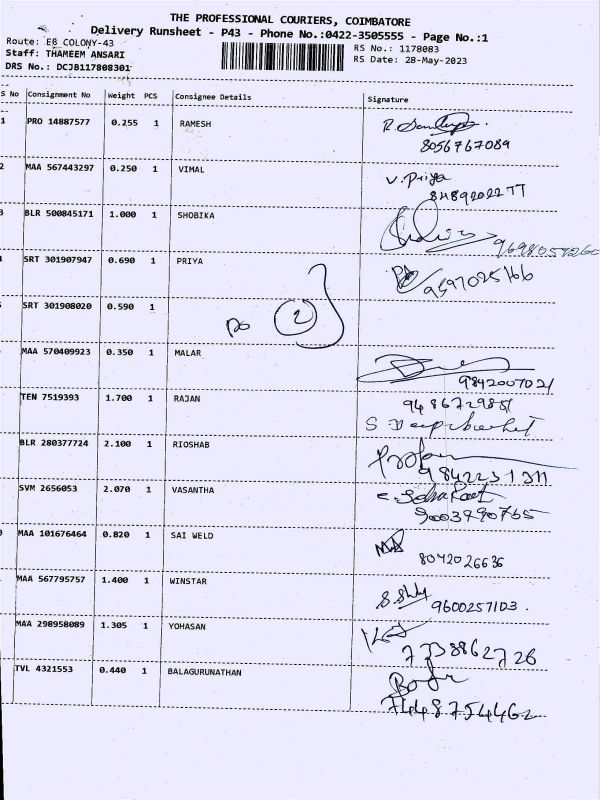 THE PROFESSIONAL COURIERS, COIMBATORE
Delivery Runsheet - P43 - Phone No.:0422-3505555 - Page No.:1
Route: E8 COLONY-43
RS No.: 1178083
Staff: THAMEEM ANSARI
RS Date: 28-May-2023
DRS No.: DCJB117808301
S No Consignment No Weight PCS Consignee Details Signature
1 PRO 14887577 0.255 1 RAMESH
8056767089
2 MAA 567443297 0.250 1 VIMAL V. Priya
8489202277
3 BLR 500845171 1.000 1 SHOBIKA
SRT 301907947 0.690 1 PRIYA
9597025166
SRT 301908020 0.590 1
2
MAA 570409923 0.350 1 MALAR
9842007021
TEN 7519393 1.700 1 RAJAN
BLR 280377724 2.100 1 RIOSHAB
9842231311
SVM 2656053 2.070 1 VASANTHA
9003990765
MAA 101676464 0.820 1 SAI WELD
8042026636
MAA 567795757 1.400 1 WINSTAR
9600257103.
MAA 298958089 1.305 1 YOHASAN
7338862726
TVL 4321553 0.440 1 BALAGURUNATHAN
7448754462